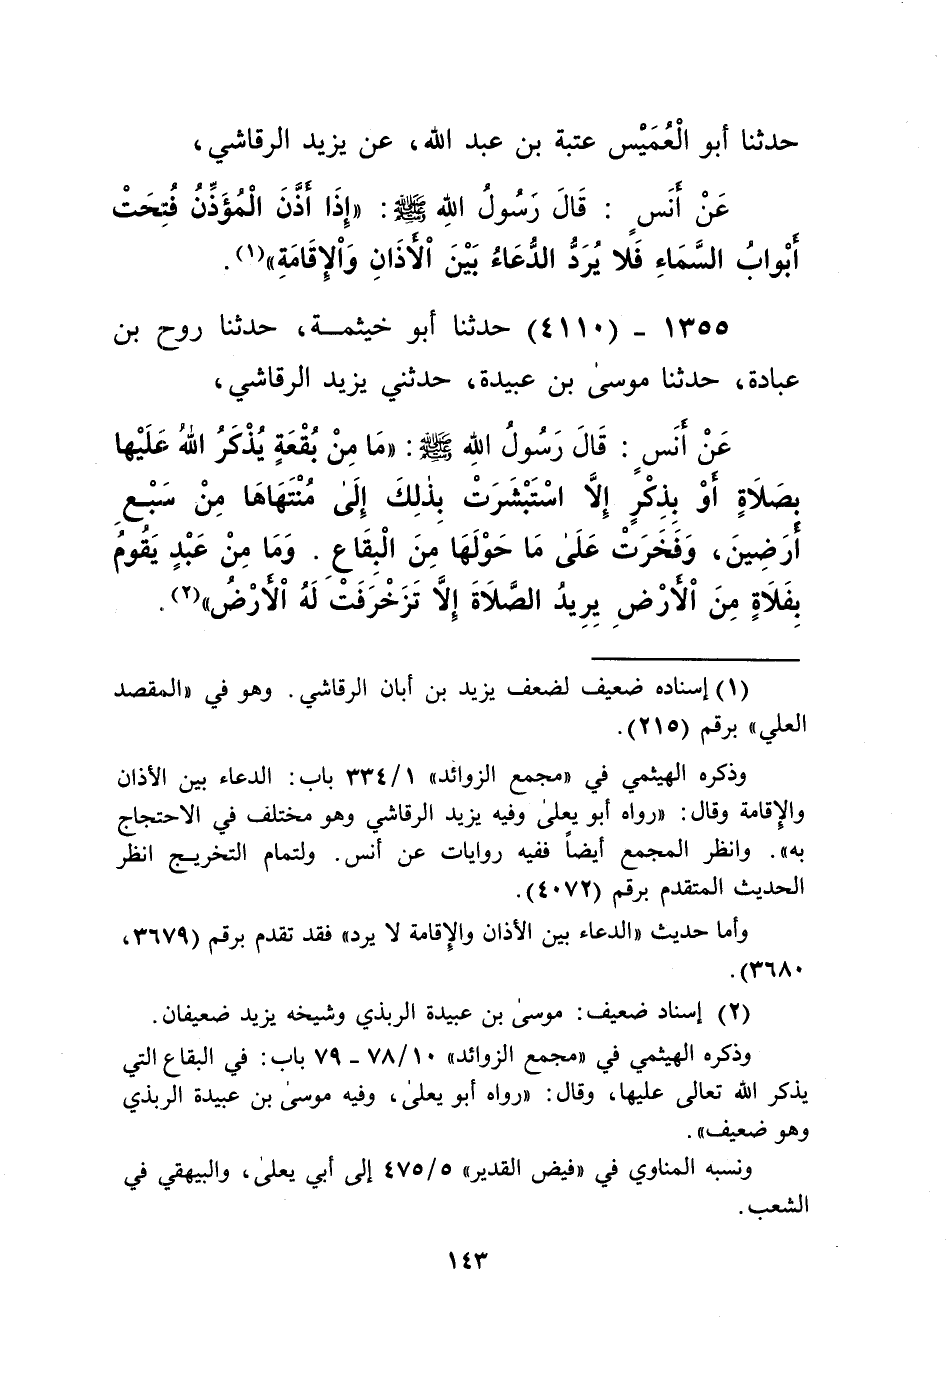 حدثنا أبو الْعُمَيْس عتبة بن عبد الله، عن يزيد الرقاشي،
عَنْ أَنَسٍ : قَالَ رَسُولُ اللهِ ﷺ: «إِذَا أَذَّنَ الْمُؤَذِّنُ فُتِحَتْ
أَبْوابُ السَّمَاءِ فَلا يُرَدُّ الدُّعَاءُ بَيْنَ الْأَذَانِ وَالْإِقَامَةِ»(١).
١٣٥٥ - (٤١١٠) حدثنا أبو خيثمـــة، حدثنا روح بن
عبادة، حدثنا موسىٰ بن عبيدة، حدثني يزيد الرقاشي،
عَنْ أَنَسٍ : قَالَ رَسُولُ اللهِ ﷺ: «مَا مِنْ بُقْعَةٍ يُذْكَرُ اللهُ عَلَيْها
بِصَلَاةٍ أَوْ بِذِكْرٍ إِلَّا اسْتَبْشَرَتْ بِذٰلِكَ إِلَىٰ مُنْتَهَاهَا مِنْ سَبْعِ
أَرَضِينَ، وَفَخَرَتْ عَلَىٰ مَا حَوْلَهَا مِنَ الْبِقَاعِ . وَمَا مِنْ عَبْدٍ يَقُومُ
بِفَلَاةٍ مِنَ الْأَرْضِ يرِيدُ الصَّلَاةَ إِلَّا تَزَخْرَفَتْ لَهُ الْأَرْضُ»(٢).
(١) إسناده ضعيف لضعف يزيد بن أبان الرقاشي. وهو في «المقصد
العلي» برقم (٢١٥).
وذكره الهيثمي في «مجمع الزوائد» ٣٣٤/١ باب: الدعاء بين الأذان
والإقامة وقال: «رواه أبو يعلىٰ وفيه يزيد الرقاشي وهو مختلف في الاحتجاج
به». وانظر المجمع أيضاً ففيه روايات عن أنس. ولتمام التخريج انظر
الحديث المتقدم برقم (٤٠٧٢).
وأما حديث «الدعاء بين الأذان والإقامة لا يرد» فقد تقدم برقم (٣٦٧٩،
٣٦٨٠).
(٢) إسناد ضعيف: موسىٰ بن عبيدة الربذي وشيخه يزيد ضعيفان.
وذكره الهيثمي في «مجمع الزوائد» ٧٨/١٠ - ٧٩ باب: في البقاع التي
يذكر الله تعالى عليها، وقال: «رواه أبو يعلىٰ، وفيه موسىٰ بن عبيدة الربذي
وهو ضعيف».
ونسبه المناوي في «فيض القدير» ٤٧٥/٥ إلى أبي يعلىٰ، والبيهقي في
الشعب.
١٤٣